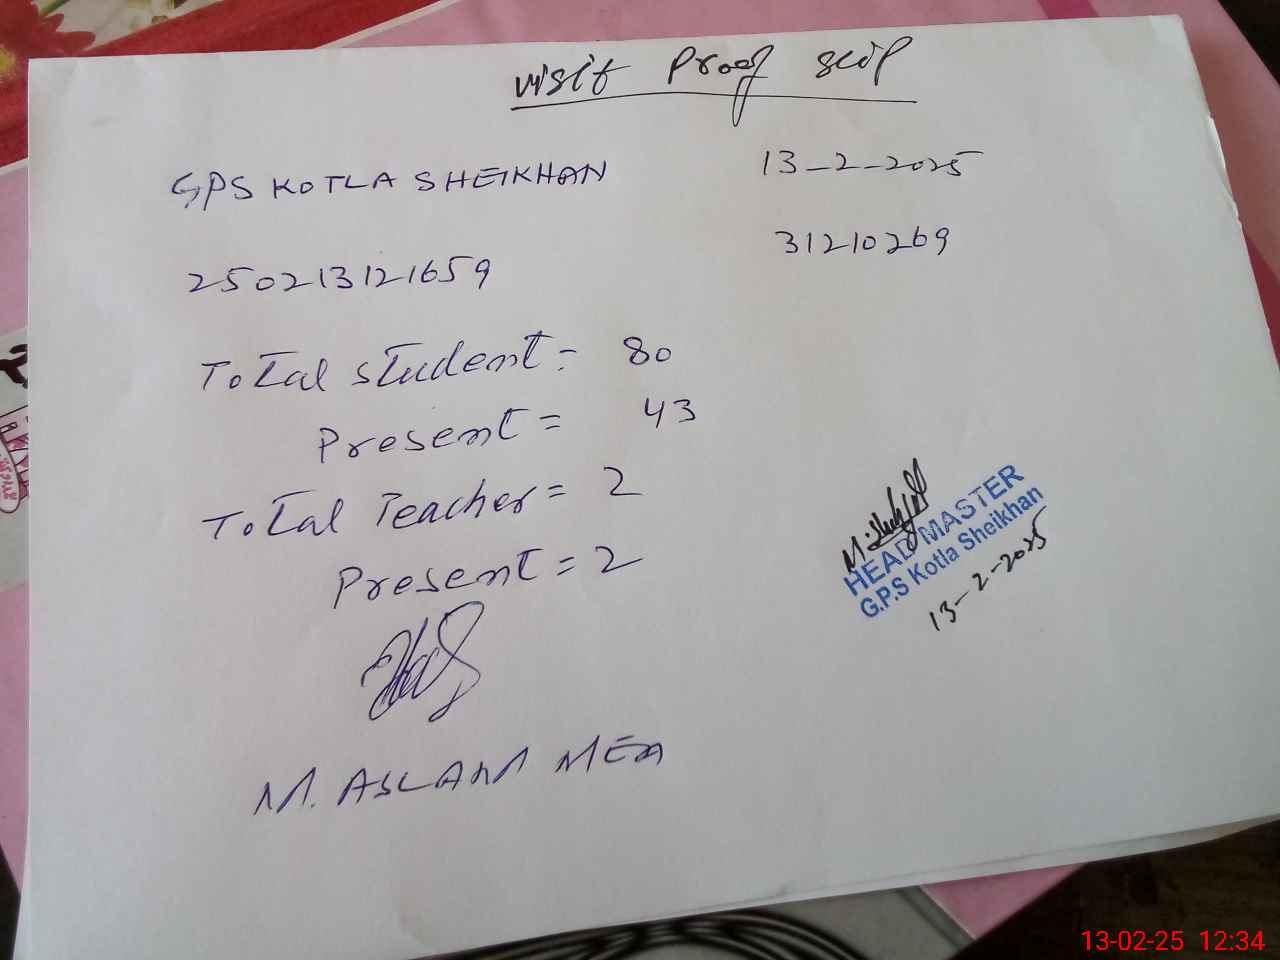 visit Proof slip
GPS KOTLA SHEIKHAN 13-2-2025
250213121659 31210269
Total student = 80
Present = 43
Total Teacher = 2
Present = 2
HEAD MASTER
G.P.S Kotla Sheikhan
13-2-2025
M. ASLAM MEA
13-02-25 12:34